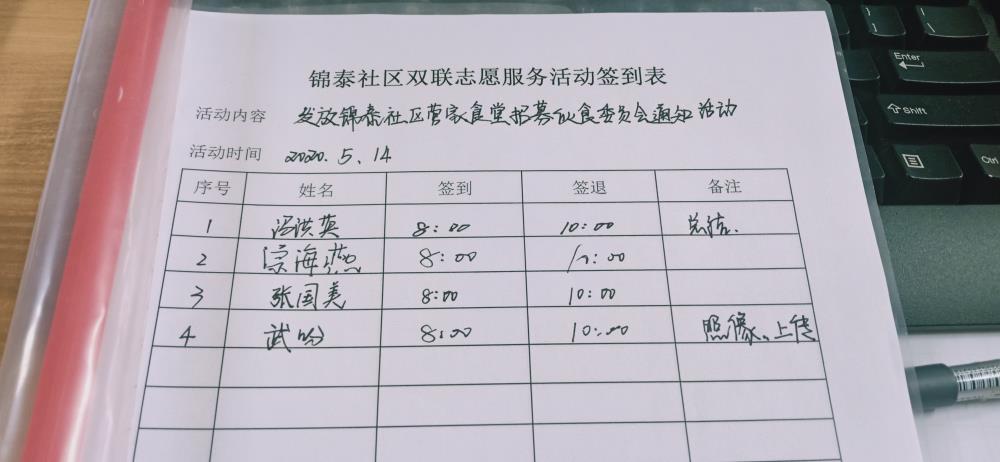 锦泰社区双联志愿服务活动签到表
活动内容 发放锦泰社区营家食堂招募伙食委员会通知活动
活动时间 2020.5.14
序号 姓名 签到 签退 备注
1 冯洪英 8:00 10:00 总结.
2 宗海燕 8:00 10:00
3 张国美 8:00 10:00
4 武 8:00 10:00 照像、上传
Enter
Shift
Ctrl